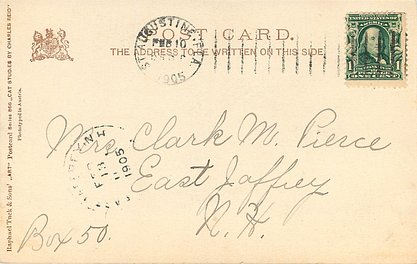 POST CARD.
THE ADDRESS TO BE WRITTEN ON THIS SIDE
ST. AUGUSTINE, FLA.
FEB 10
1905
UNITED STATES OF AMERICA
Mrs. Clark M. Pierce
East Jaffrey
N. H.
Box 50.
FEB
13
1905
N.H.
Raphael Tuck & Sons' "ART" Postcard Series 866 "CAT STUDIES BY CHARLES REID"
Phototyped in Austria.